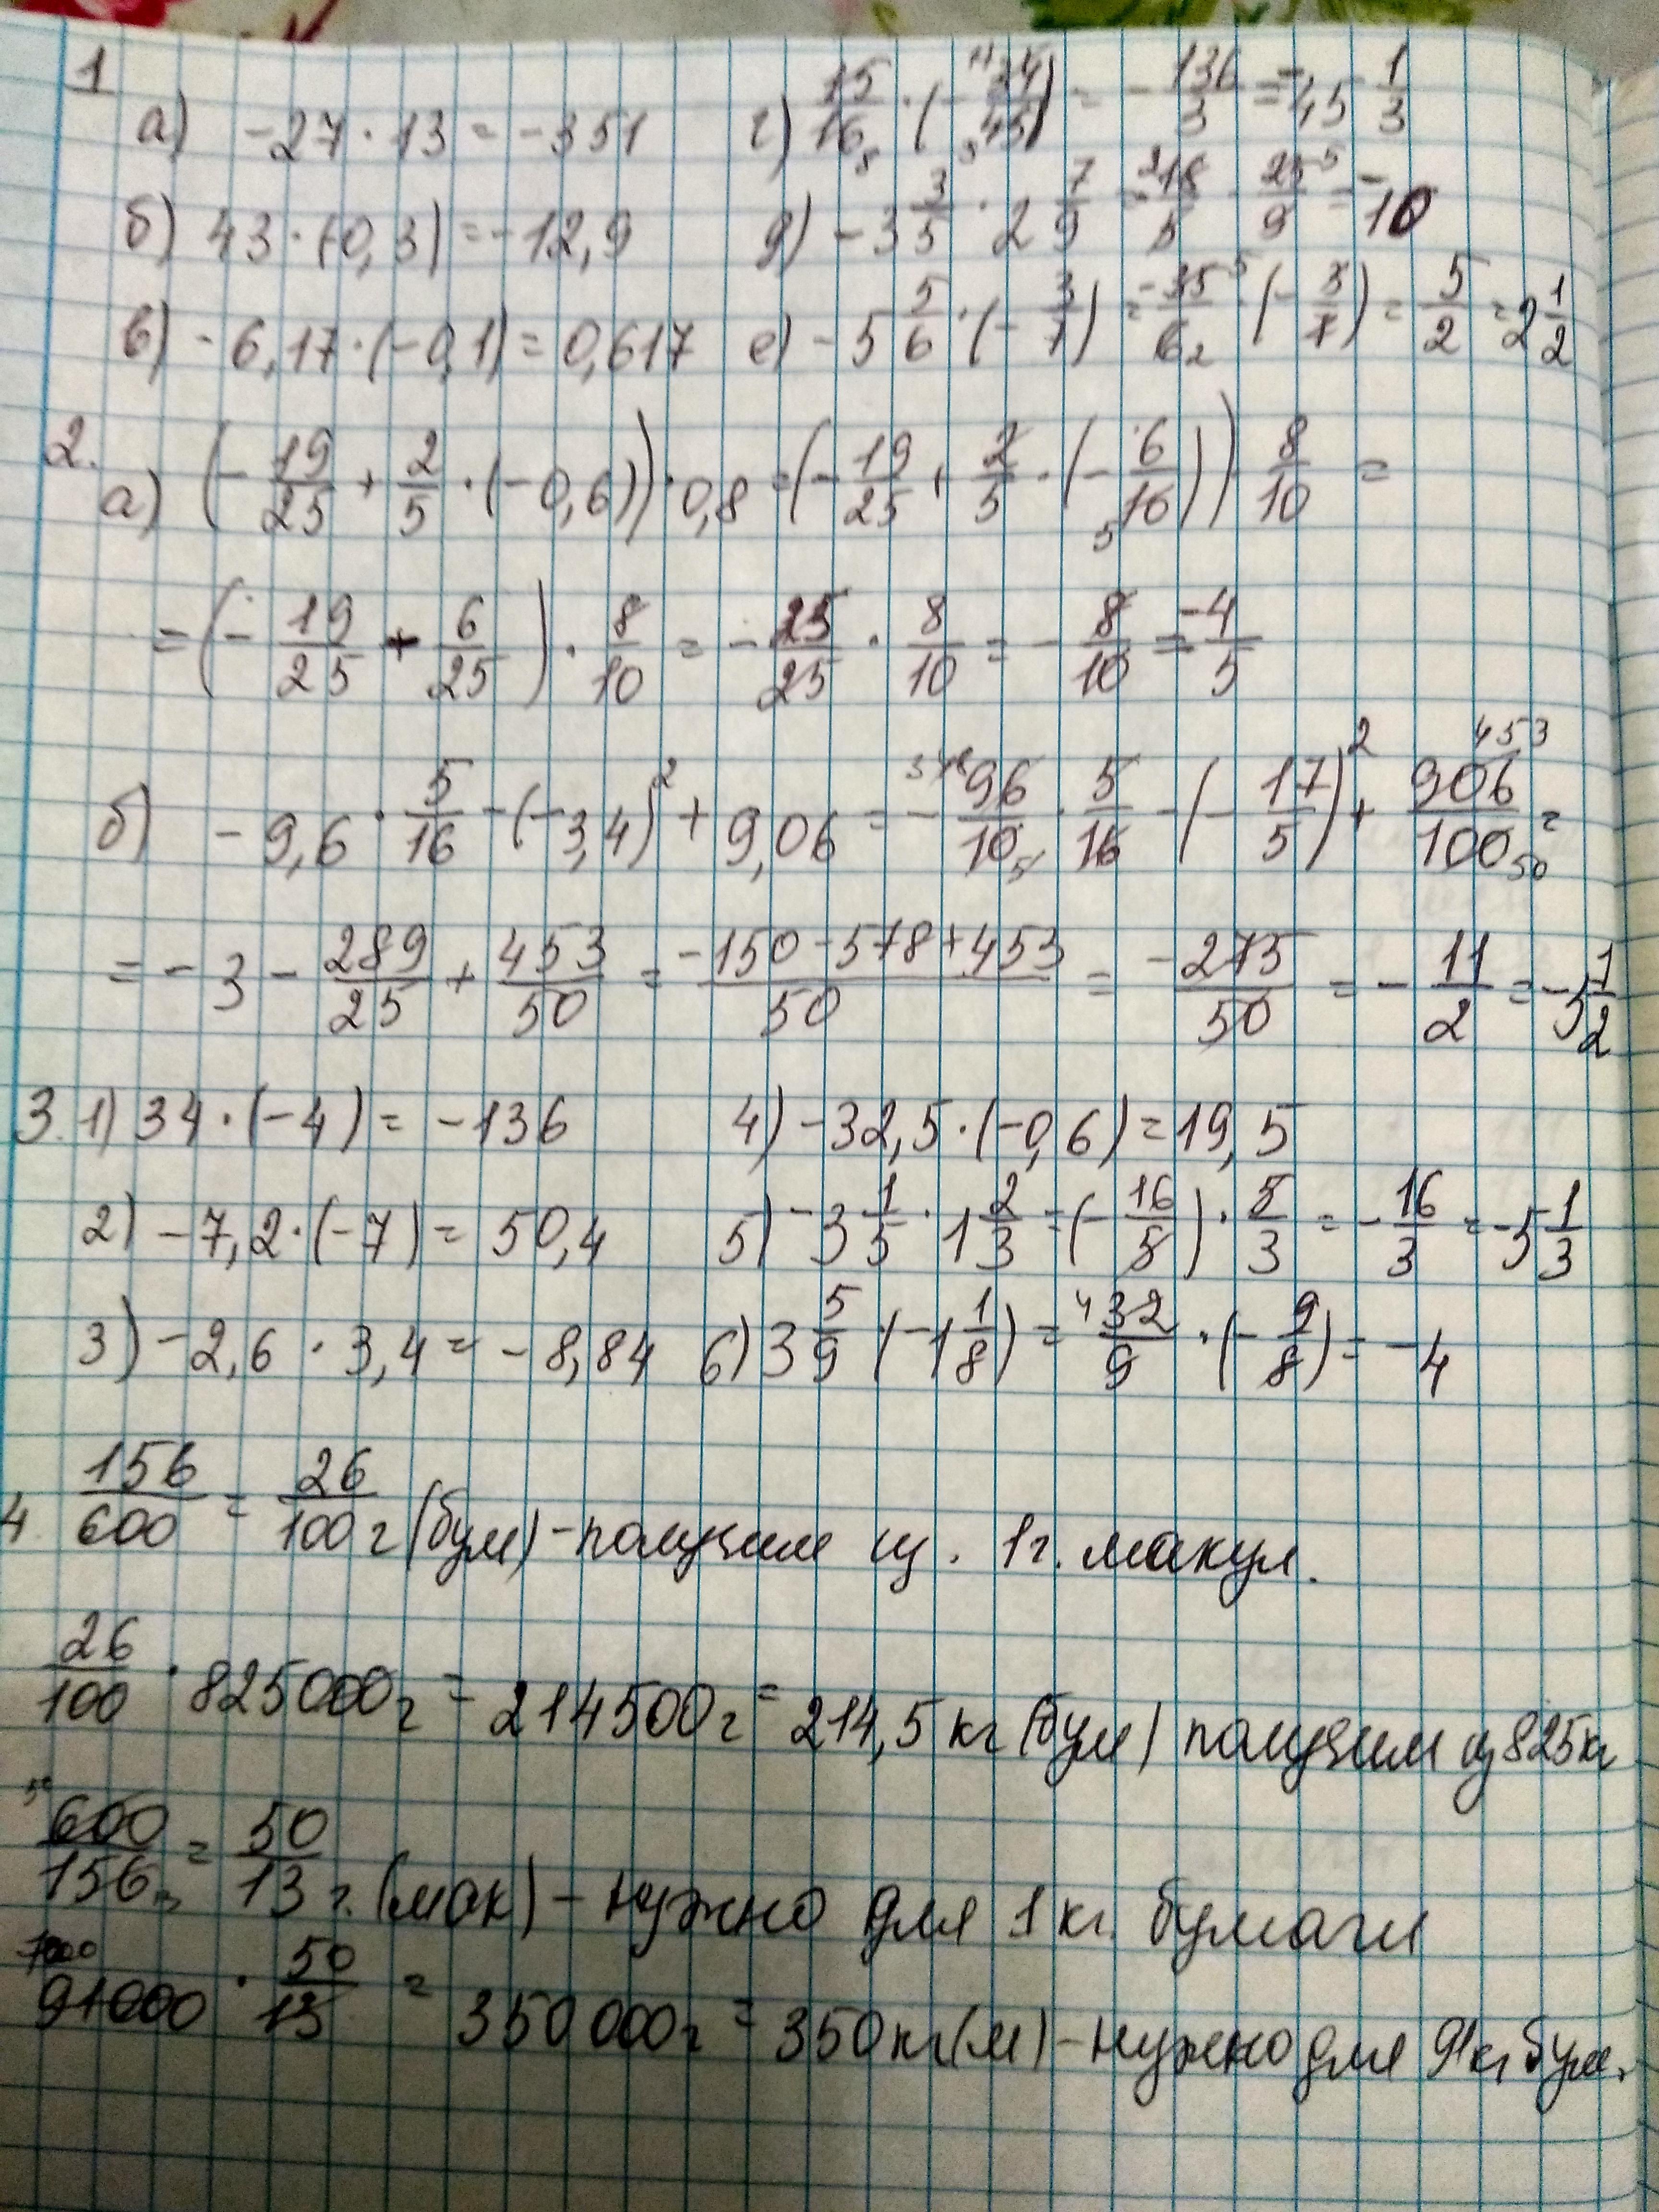 1
а) -27 · 13 = -351 г) 15/16 · (-34/45) = -136/3 = -45 1/3
б) 43 · (-0,3) = -12,9 д) -3 3/5 · 2 7/9 = -18/5 · 25/9 = -10
в) -6,17 · (-0,1) = 0,617 е) -5 5/6 · (-3/7) = -35/6 · (-3/7) = 5/2 = 2 1/2
2.
а) (-19/25 + 2/5 · (-0,6)) · 0,8 = (-19/25 + 2/5 · (-6/10)) 8/10 =
= (-19/25 - 6/25) · 8/10 = -25/25 · 8/10 = -8/10 = -4/5
б) -9,6 · 5/16 - (-3,4)² + 9,06 = -96/10 · 5/16 - (-17/5)² + 906/100 =
= -3 - 289/25 + 453/50 = -150-578+453/50 = -275/50 = -11/2 = -5 1/2
3. 1) 34 · (-4) = -136 4) -32,5 · (-0,6) = 19,5
2) -7,2 · (-7) = 50,4 5) -3 1/5 · 1 2/3 = (-16/5) · 5/3 = -16/3 = -5 1/3
3) -2,6 · 3,4 = -8,84 6) 3 5/9 (-1 1/8) = 32/9 · (-9/8) = -4
4. 156/600 = 26/100 г (бум) - получим из 1г. макул.
26/100 · 825000г = 214500г = 214,5 кг (бум) получим из 825кг
600/156 = 50/13 г. (мак) - нужно для 1 кг. бумаги
91000 · 50/13 = 350 000г = 350 кг (м) - нужно для 91кг бум.